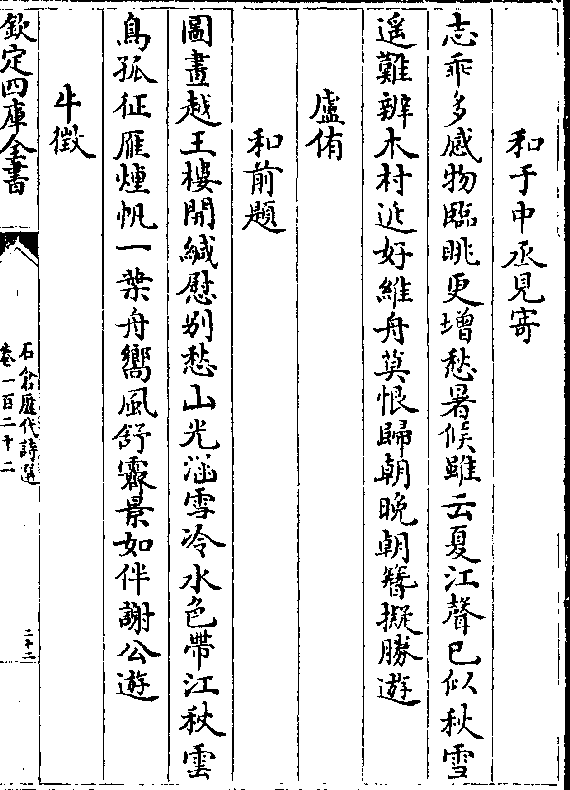 和于中丞見寄
志乖多感物臨眺更增愁暑候雖云夏江聲已似秋雪
遥難辨木村近好維舟莫恨歸朝晚朝簪擬勝遊
盧侑
和前題
圖畫越王樓開緘慰别愁山光涵雪冷水色帶江秋雲
鳥孤征雁煙帆一葉舟嚮風舒霽景如伴謝公遊
牛徵
欽定四庫全書
石倉歷代詩選
卷一百二十二
二十二